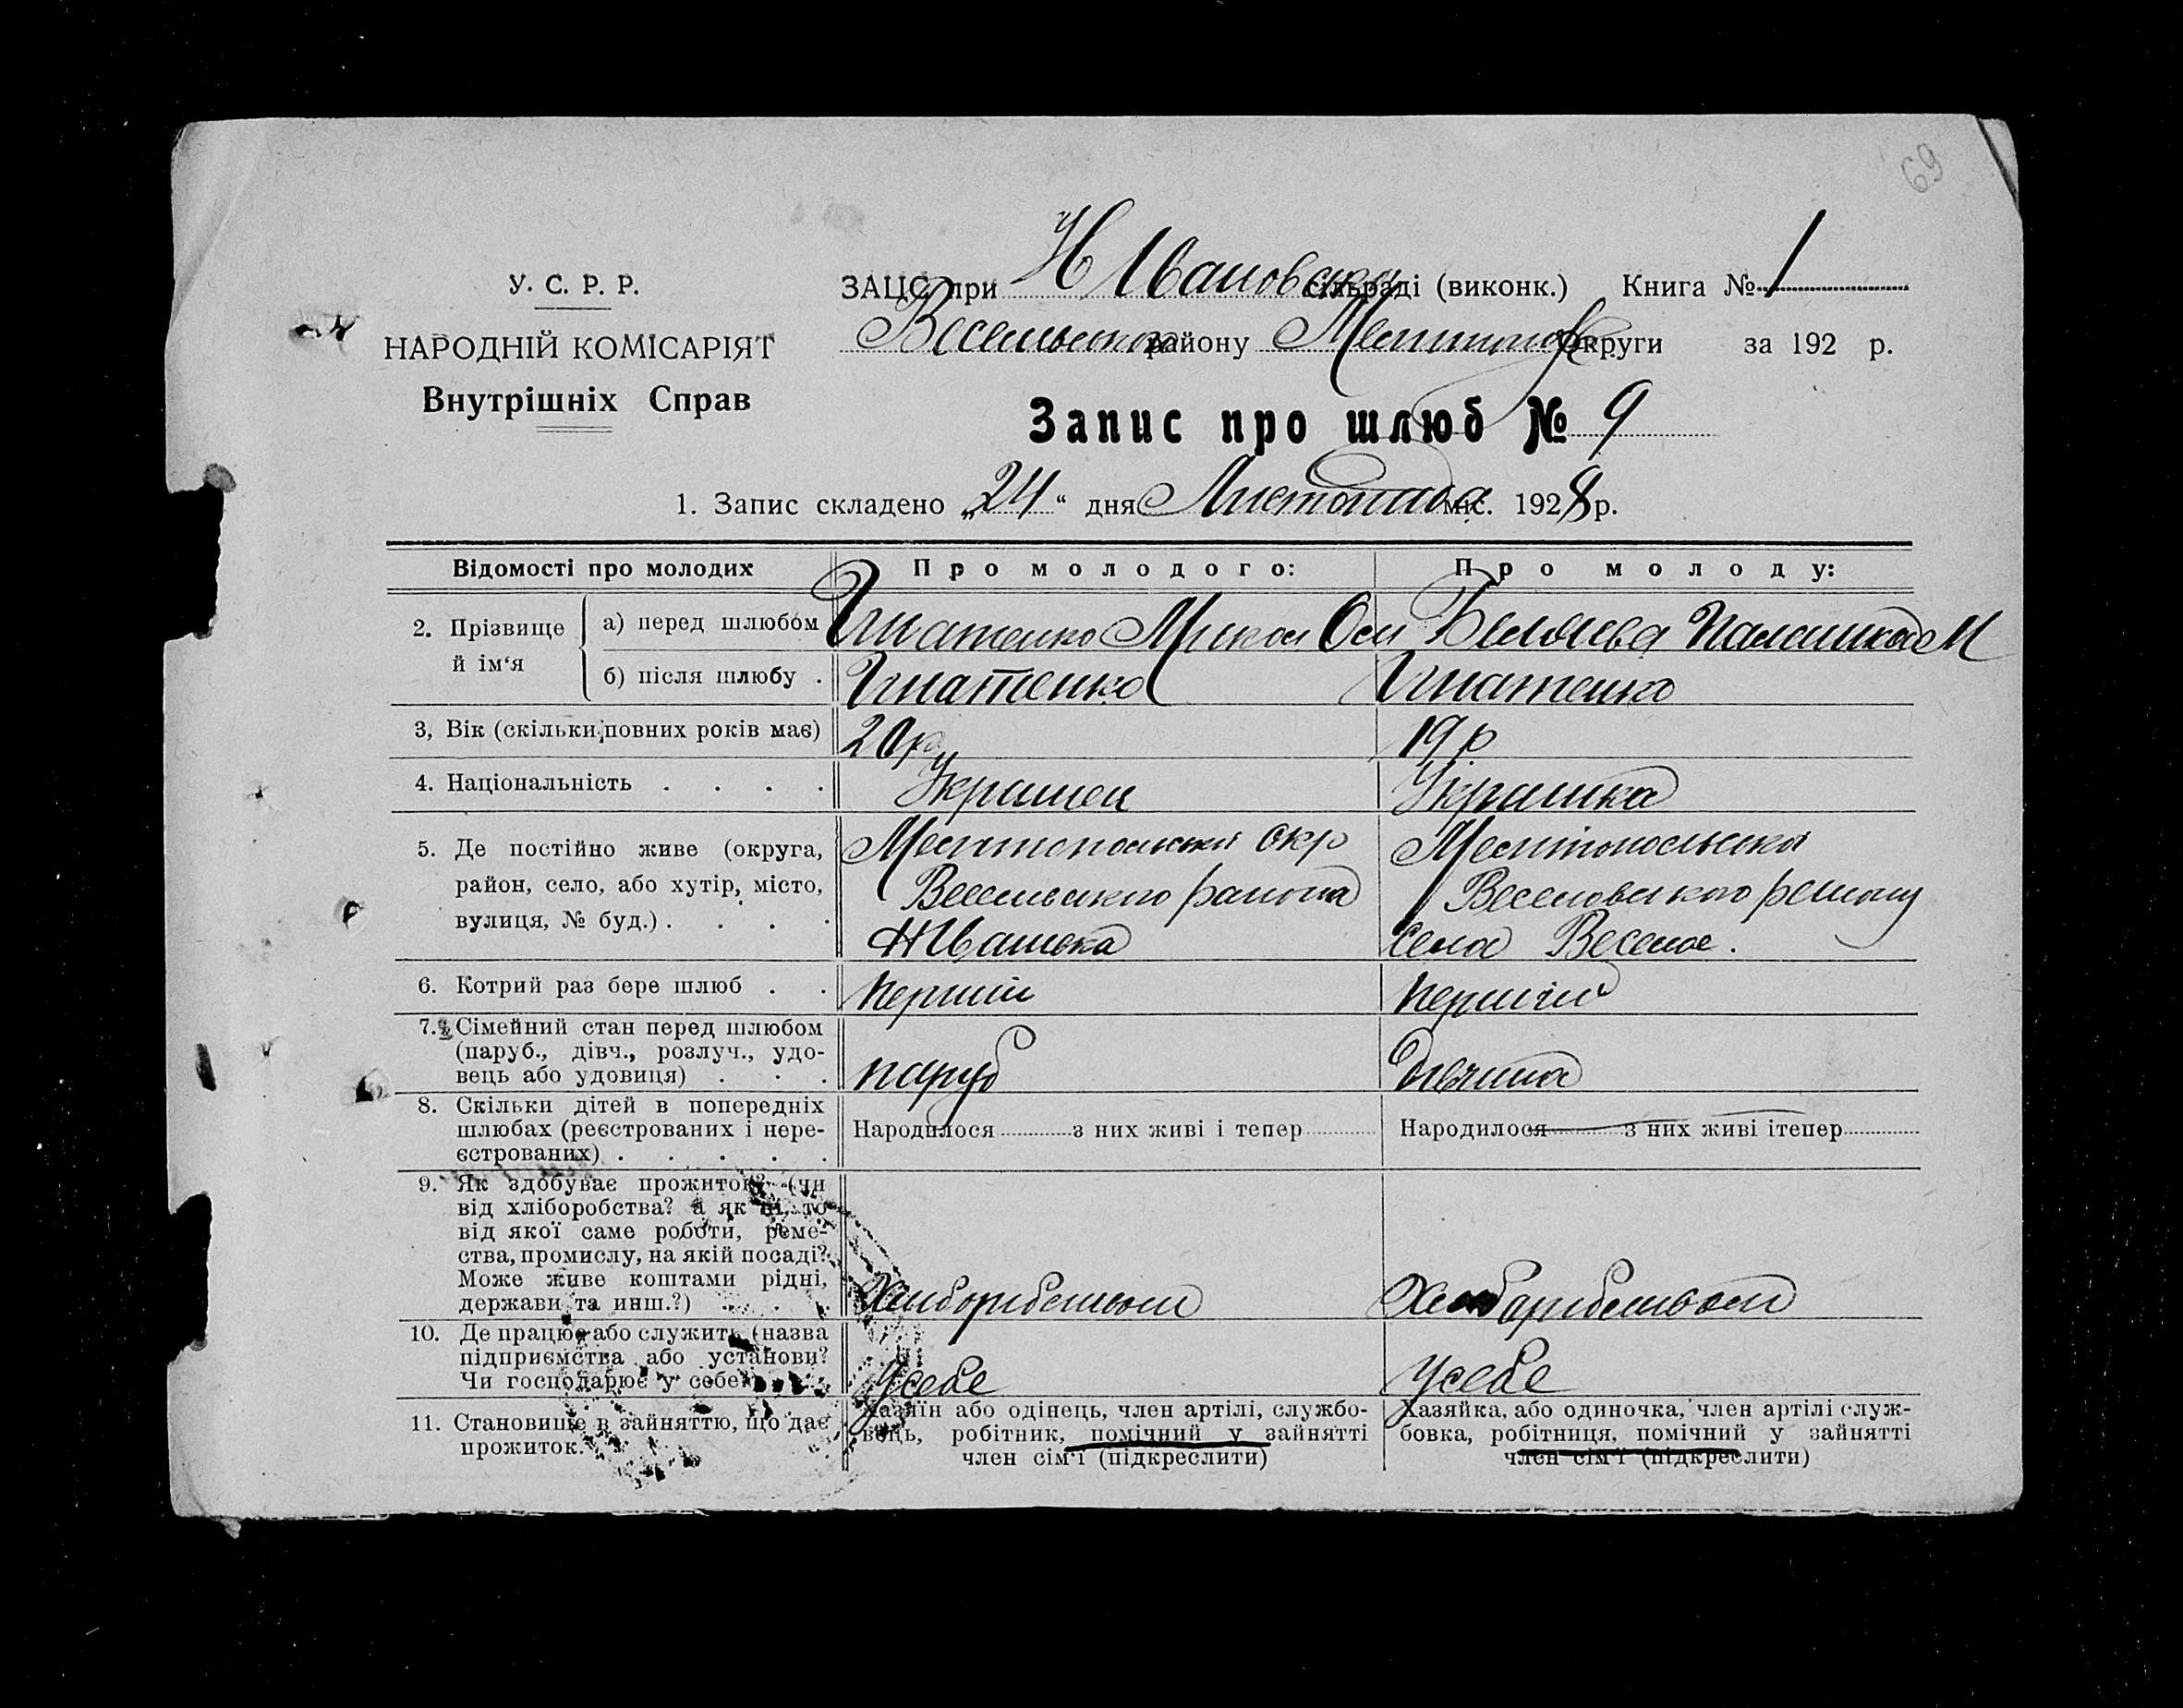 69
У. С. Р. Р.
НАРОДНІЙ КОМІСАРІЯТ
Внутрішніх Справ
ЗАЦС при Н Ивановскій сільраді (виконк.) Книга № 1
Весельского району Мелитоп округи за 192 р.
Запис про шлюб № 9
1. Запис складено „24“ дня Листопада міс. 1928 р.
Відомості про молодих
Про молодого:
Про молоду:
2. Прізвище й ім‘я
а) перед шлюбом
Игнатенко Микол Оси
Беляева Палашка М
б) після шлюбу .
Игнатенко
Игнатенко
3, Вік (скільки повних років має)
20р
19р
4. Національність . . . .
Украинец
Українка
5. Де постійно живе (округа,
район, село, або хутір, місто,
вулиця, № буд.) . . . .
Мелитопольскій окр
Весельского района
НИвановка
Мелітопольскої
Веселовского району
Села Веселое.
6. Котрий раз бере шлюб . .
Перший
Перший
7. Сімейний стан перед шлюбом
(паруб., дівч., розлуч., удо-
вець або удовиця) . . .
паруб
Дівчина
8. Скільки дітей в попередніх
шлюбах (реєстрованих і нере-
єстрованих) . . . . .
Народилося з них живі і тепер
Народилося з них живі ітепер
9. Як здобуває прожиток? (чи
від хліборобства? а як ні, то
від якої саме роботи, реме-
ства, промислу, на якій посаді?
Може живе коштами рідні,
держави та инш.?)
Хлиборибством
Хлиборибством
10. Де працює або служить (назва
підприємства або установи?
Чи господарює у себе)
Усебе
Усебе
11. Становище в зайняттю, що дає
прожиток.
Хазяїн або одінець, член артілі, службо-
вець, робітник, помічний у зайнятті
член сім‘ї (підкреслити)
Хазяйка, або одиночка, член артілі служ-
бовка, робітниця, помічний у зайнятті
член сім‘ї (підкреслити)